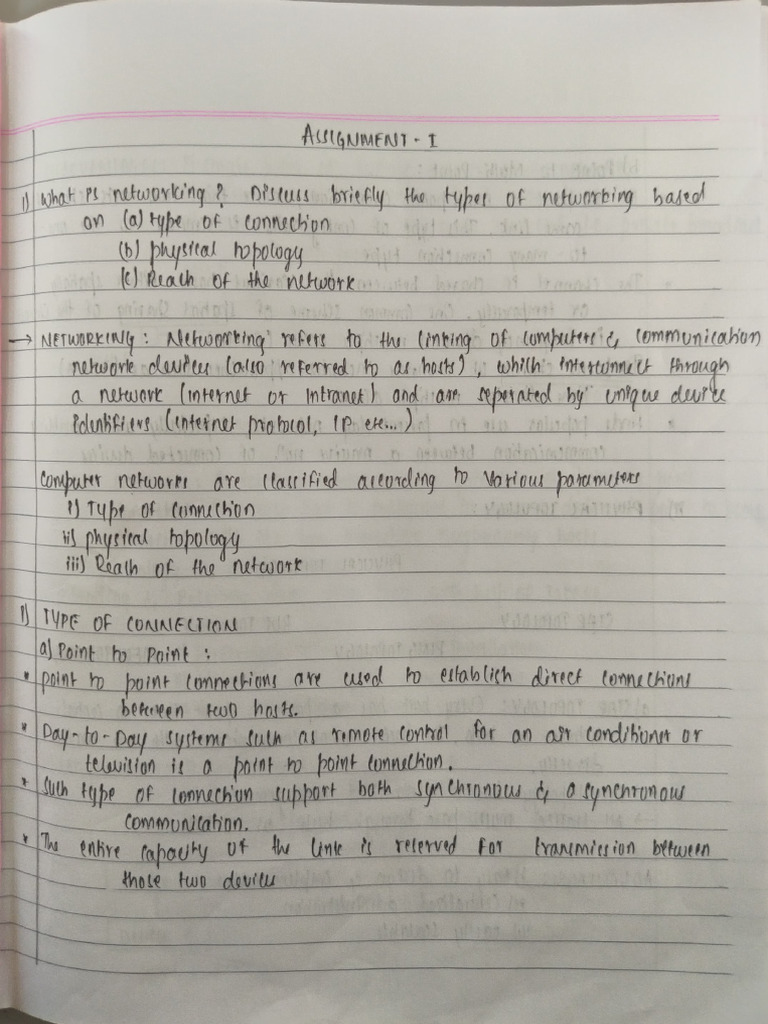 ASSIGNMENT - I
1) What is networking? Discuss briefly the types of networking based
on (a) type of connection
(b) physical topology
(c) Reach of the network
→ NETWORKING: Networking refers to the linking of computers & communication
network devices (also referred to as hosts), which interconnect through
a network (internet or Intranet) and are seperated by unique device
identifiers (internet protocol, IP etc...)
computer networks are classified according to various parameters
i) Type of connection
ii) physical topology
iii) Reach of the network
i) TYPE OF CONNECTION
a) Point to Point :
* point to point connections are used to establish direct connections
between two hosts.
* Day-to-Day systems such as remote control for an air conditioner or
television is a point to point connection.
* such type of connection support both synchronous & asynchronous
communication.
* The entire capacity of the link is reserved for transmission between
those two devices